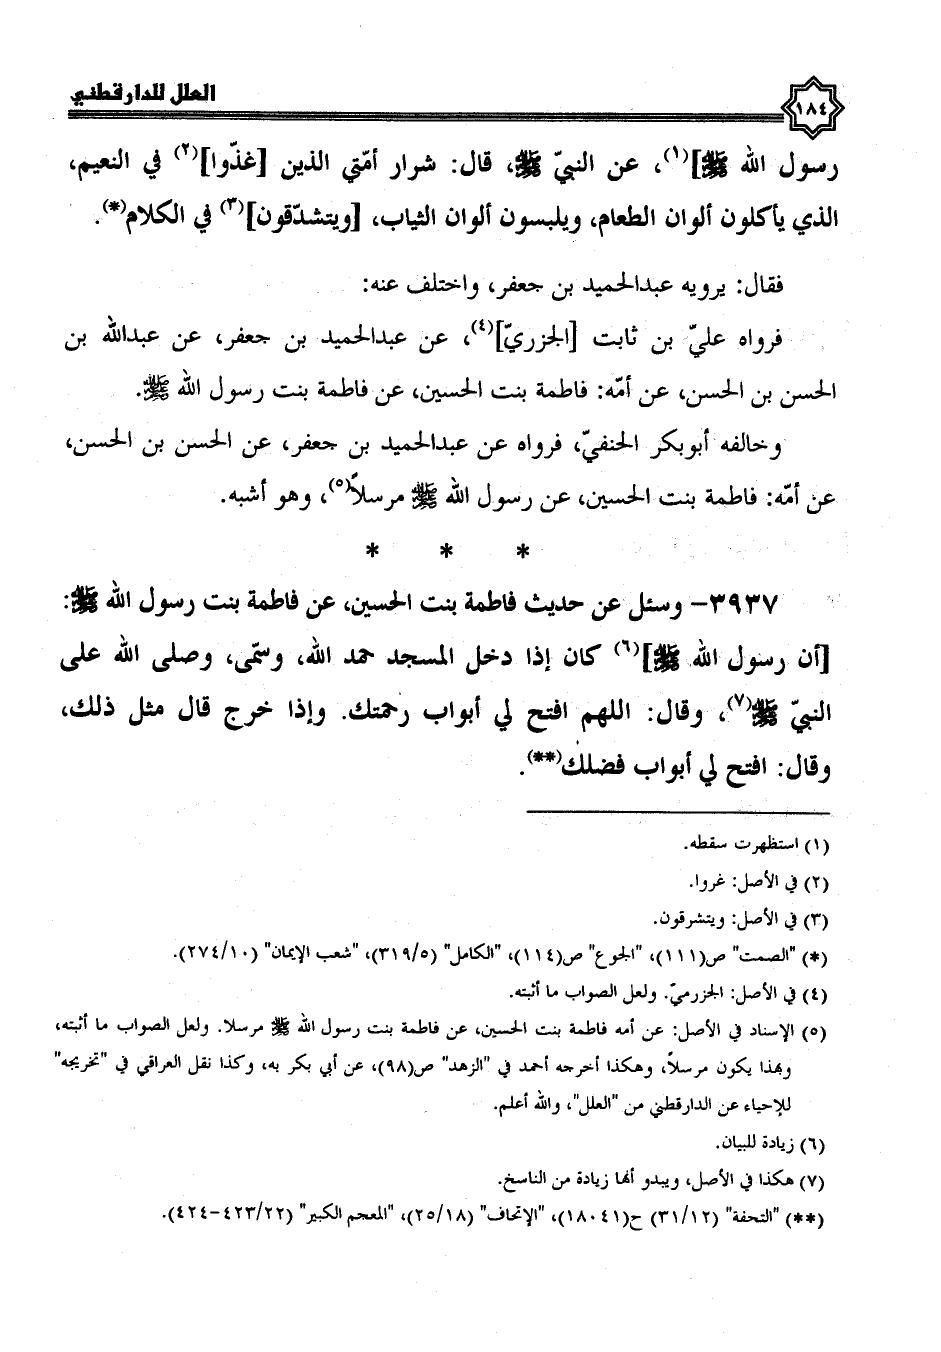 ١٨٤ العلل للدارقطني
رسول الله ﷺ](١)، عن النبيّ ﷺ، قال: شرار أمّتي الذين [غذّوا](٢) في النعيم،
الذي يأكلون ألوان الطعام، ويلبسون ألوان الثياب، [ويتشدّقون](٣) في الكلام(*).
فقال: يرويه عبدالحميد بن جعفر، واختلف عنه:
فرواه عليّ بن ثابت [الجزريّ](٤)، عن عبدالحميد بن جعفر، عن عبدالله بن
الحسن بن الحسن، عن أمّه: فاطمة بنت الحسين، عن فاطمة بنت رسول الله ﷺ.
وخالفه أبوبكر الحنفيّ، فرواه عن عبدالحميد بن جعفر، عن الحسن بن الحسن،
عن أمّه: فاطمة بنت الحسين، عن رسول الله ﷺ مرسلاً(٥)، وهو أشبه.
* * *
٣٩٣٧- وسئل عن حديث فاطمة بنت الحسين، عن فاطمة بنت رسول الله ﷺ:
[أن رسول الله ﷺ](٦) كان إذا دخل المسجد حمد الله، وسمّى، وصلى الله على
النبيّ ﷺ(٧)، وقال: اللهم افتح لي أبواب رحمتك. وإذا خرج قال مثل ذلك،
وقال: افتح لي أبواب فضلك(**).
(١) استظهرت سقطه.
(٢) في الأصل: غروا.
(٣) في الأصل: ويتشرقون.
(*) "الصمت" ص(١١١)، "الجوع" ص(١١٤)، "الكامل" (٣١٩/٥)، "شعب الإيمان" (٢٧٤/١٠).
(٤) في الأصل: الجزرميّ. ولعل الصواب ما أثبته.
(٥) الإسناد في الأصل: عن أمه فاطمة بنت الحسين، عن فاطمة بنت رسول الله ﷺ مرسلا. ولعل الصواب ما أثبته،
وبهذا يكون مرسلاً، وهكذا أخرجه أحمد في "الزهد" ص(٩٨)، عن أبي بكر به، وكذا نقل العراقي في "تخريجه"
للإحياء عن الدارقطني من "العلل"، والله أعلم.
(٦) زيادة للبيان.
(٧) هكذا في الأصل، ويبدو أنها زيادة من الناسخ.
(**) "التحفة" (٣١/١٢) ح(١٨٠٤١)، "الإتحاف" (٢٥/١٨)، "المعجم الكبير" (٤٢٣/٢٢-٤٢٤).